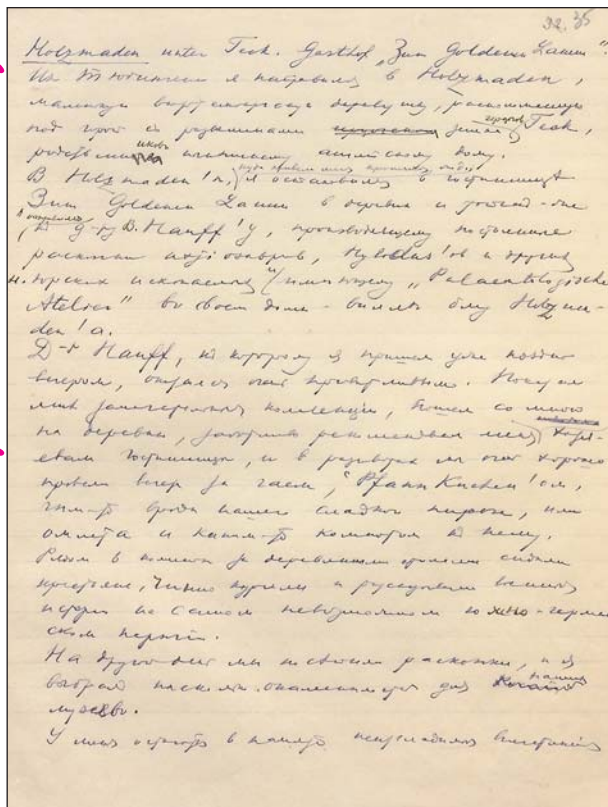 32. 35
Holzmaden unter Teck. Gasthof „Zum Goldenen Lamm".
Из Тюбингена я направился в Holzmaden,
маленькую вюртембергскую деревушку, расположенную
под горой с развалинами замка герцогов Teck,
родственных нынешнему английскому дому.
В Holzmaden'е, я остановился в гостинице
Zum Goldenen Lamm в деревне и
к д-ру B. Hauff'у, производящему постоянные
раскопки ихтиозавров, Hybodus'ов и других
н. юрских ископаемых и имеющему „Palaeontologische
Atelier" во своем доме - вилле близ Holzma-
den'а.
D-r Hauff, к которому я пришел уже поздно
вечером, оказался очень приветливым. Показал
мне замечательные коллекции, пошел со мною
на деревню, рекомендовал меня хозя-
евам гостиницы, и в разговорах мы очень хорошо
провели вечер за чаем, „Pfann Kuchen'ом,
чем-то вроде нашего сладкого пирога, или
омлета и каким-то компотом к нему.
Рядом в комнате за деревянными столами сидели
крестьяне, чинно курили и рассказывали военные
истории на самом невозможном южно-герман-
ском наречии.
На другой день мы посетили раскопки, и я
выбрал несколько экземпляров для нашего
музея.
У меня остались в памяти неизгладимые впечатления